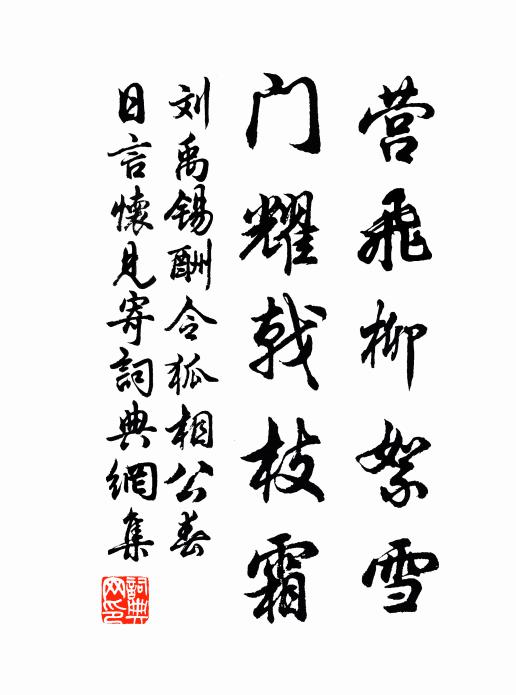 营飞柳絮雪
门耀戟枝霜
刘禹锡酬令狐相公春
日言懷見寄詞典網集
詞典网印